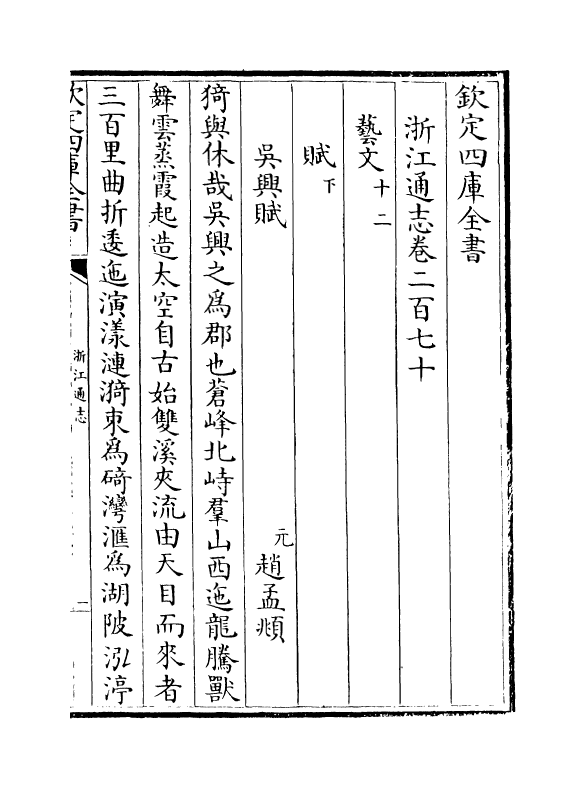 欽定四庫全書
浙江通志卷二百七十
藝文十二
賦下
吳興賦　元趙孟頫
猗與休哉吳興之為郡也蒼峰北峙羣山西迤龍騰獸
舞雲蒸霞起造太空自古始雙溪夾流由天目而來者
三百里曲折逶迤演漾漣漪束為碕灣滙為湖陂泓渟
欽定四庫全書
浙江通志